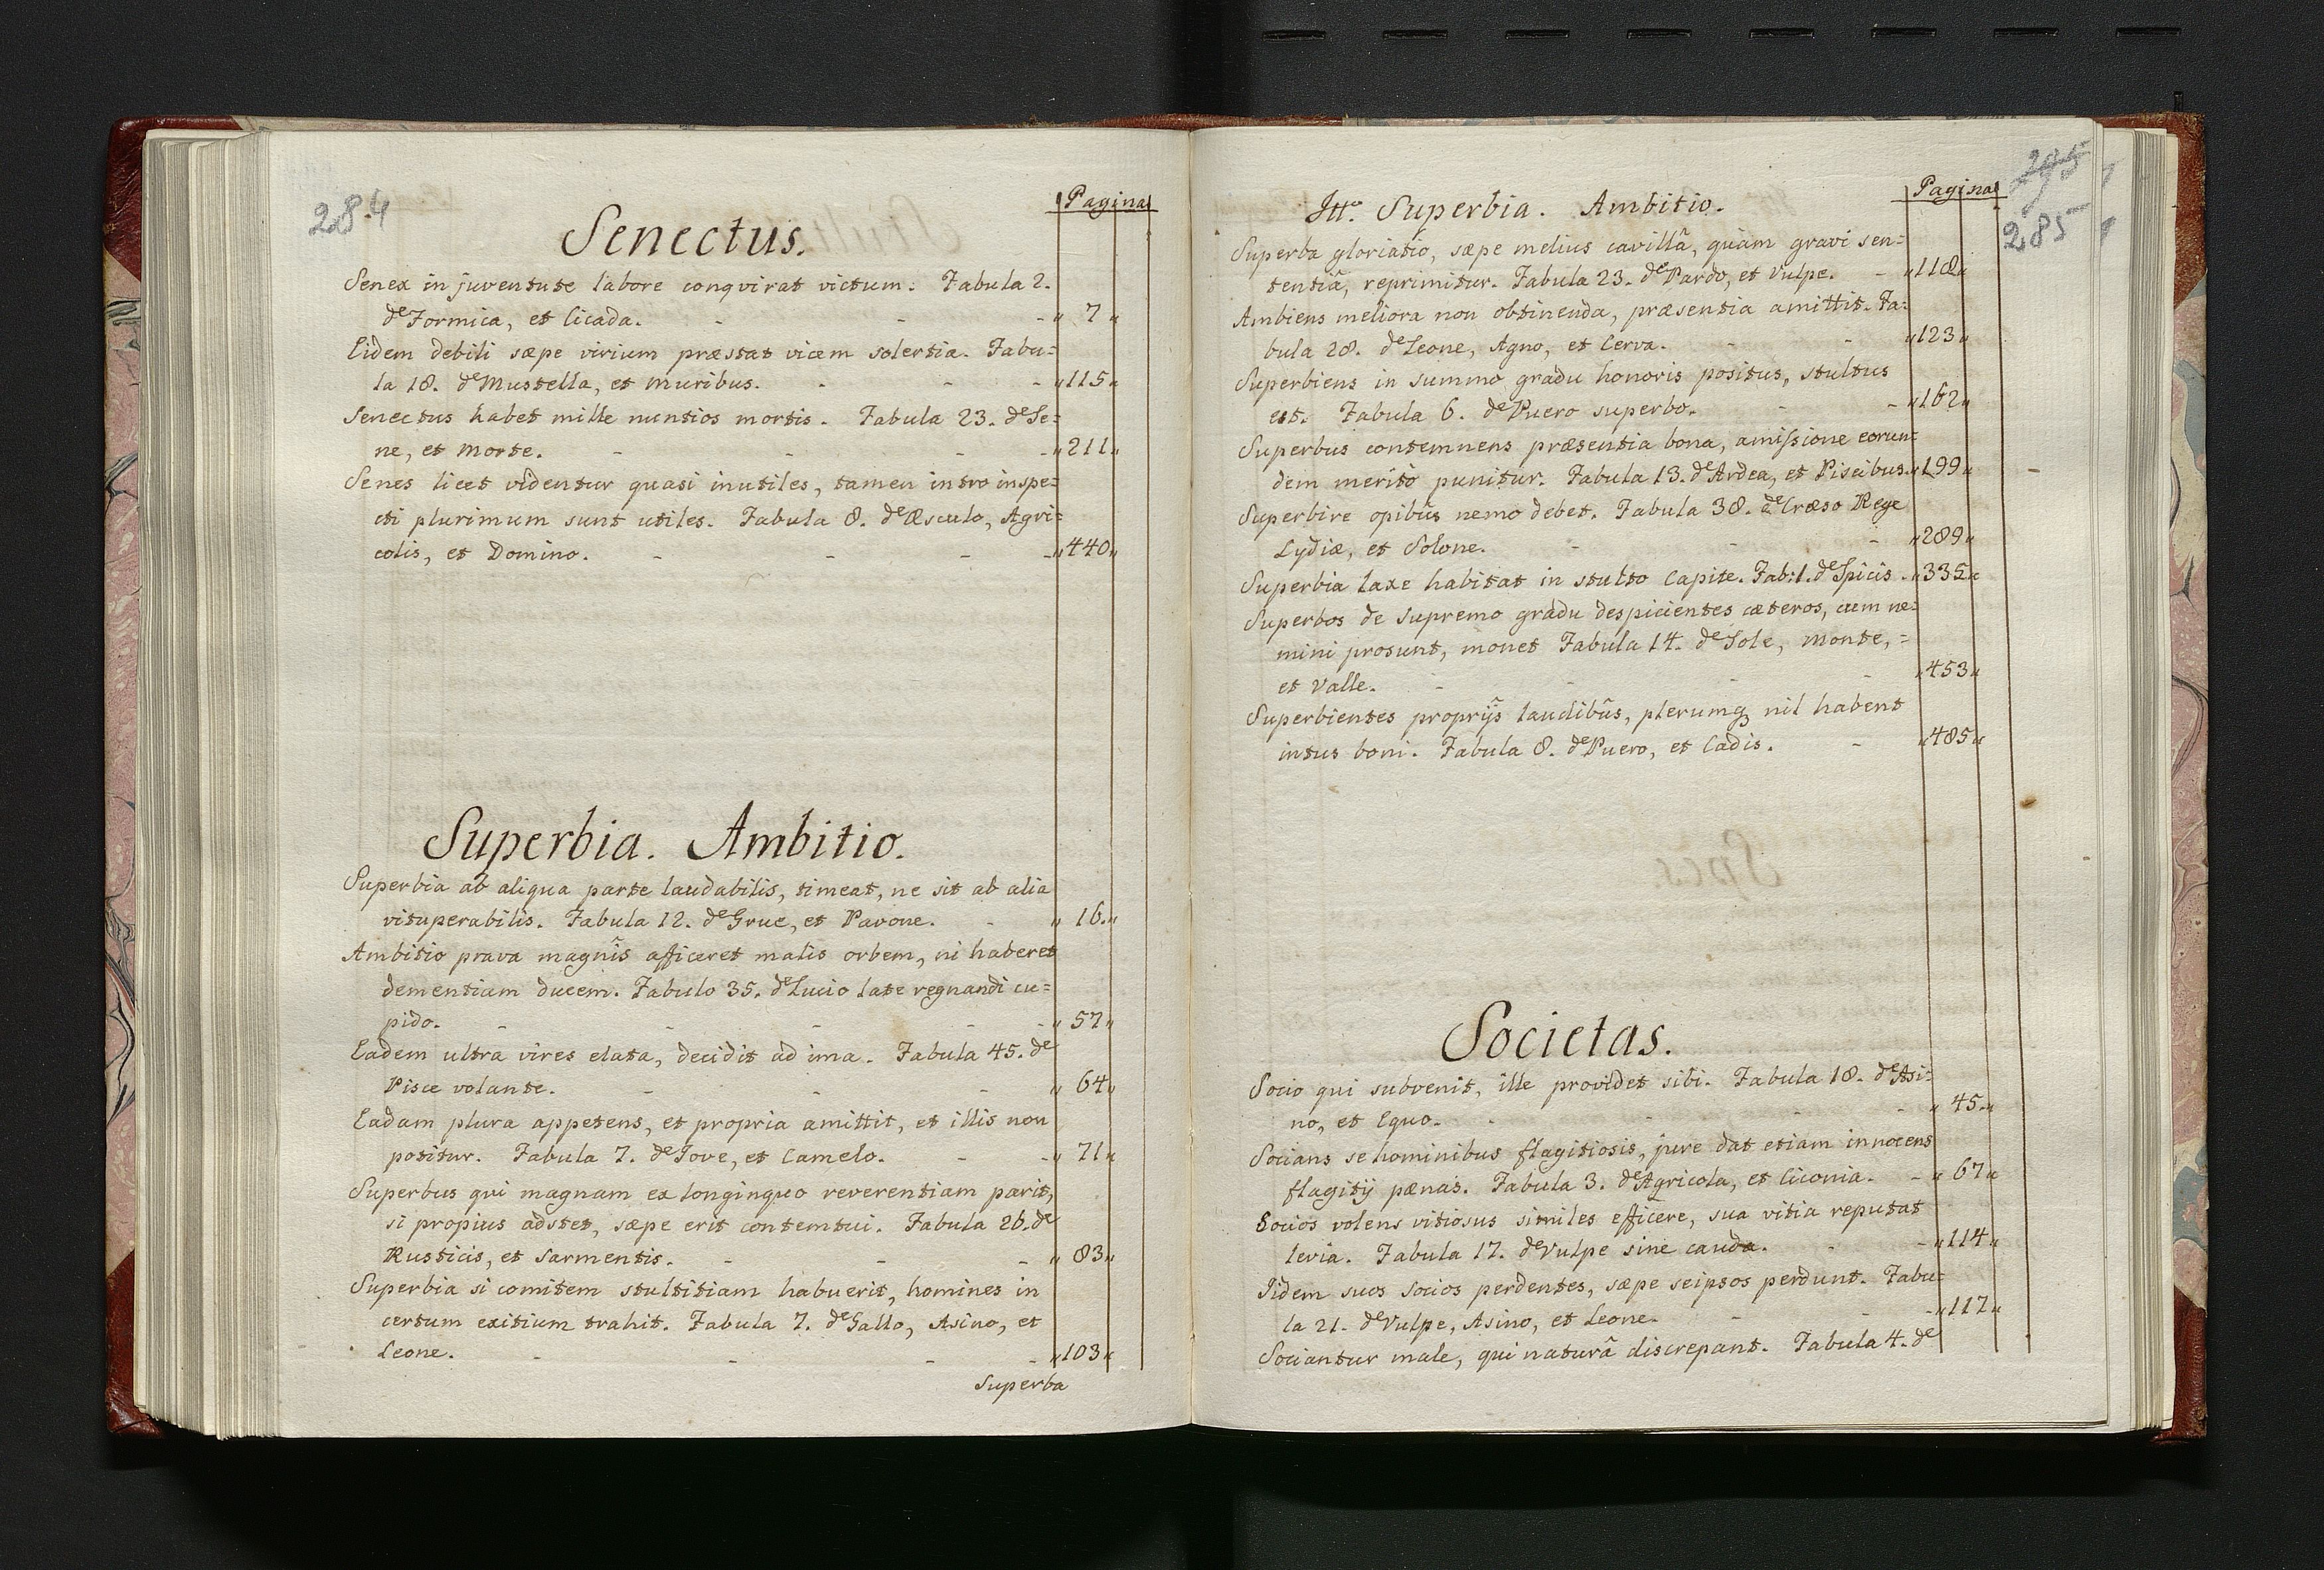 284
Pagina
Senectus.
Senex in juventute labore conqvirat victum. Fabula 2.
de Formica, et Cicada. - - - „ 7 „
Eidem debili sæpe virium præstat vicem solertia. Fabu=
la 18. de Mustella, et Muribus. - - - „115„
Senectus habet mille nuntios mortis. Fabula 23. de Se=
ne, et Morte. - - - - „211„
Senes licet videntur quasi inutiles, tamen intro inspe=
cti plurimum sunt utiles. Fabula 8. de Æsculo, Agri=
colis, et Domino. - - - - „440„
Superbia. Ambitio.
Superbia ab aliqua parte laudabilis, timeat, ne sit ab alia
vituperabilis. Fabula 12. de Grue, et Pavone. - „ 16.„
Ambitio prava magnîs afficeret malis orbem, ni haberet
dementiam ducem. Fabulo 35. de Lucio late regnandi cu=
pido. - - - - - „ 57„
Eadem ultra vires elata, decidit ad ima. Fabula 45. de
Pisce volante. - - - „ 64„
Eadam plura appetens, et propria amittit, et illis non
potitur. Fabula 7. de Jove, et Camelo. - - „ 71„
Superbus qui magnam ex longinquo reverentiam parit,
si propius adstet, sæpe erit contemtui. Fabula 26. de
Rusticis, et Sarmentis. - - - „ 83„
Superbia si comitem stultitiam habuerit, homines in
certum exitium trahit. Fabula 7. de Gallo, Asino, et
Leone. - - - - „103„
Superba
295
285
Pagina
Itto. Superbia. Ambitio.
Superba gloriatio, sæpe melius cavillâ, quàm gravi sen=
tentiâ, reprimitur. Fabula 23. de Pardo, et Vulpe. - „118„
Ambiens meliora non obtinenda, præsentia amittit. Fa=
bula 28. de Leone, Agno, et Cerva. - - „123„
Superbiens in summo gradu honoris positus, stultus
est. Fabula 6. de Puero superbo. - - „162„
Superbus contemnens præsentia bona, amissione eorun=
dem meritò punitur. Fabula 13. de Ardea, et Piscibus. „199„
Superbire opibûs nemo debet. Fabula 38. de Cræso Rege
Lydiæ, et Solone. - - - „289„
Superbia laxe habitat in stulto Capite. Fab: 1. de Spicis. „335„
Superbos de supremo gradu despicientes cæteros, cum ne=
mini prosunt, monet Fabula 14. de Sole, Monte, =
et Valle. - - - - „453„
Superbientes proprijs laudibûs, plerumq nil habent
intus boni. Fabula 8. de Puero, et Cadis. - „485„
Societas.
Socio qui subvenit, ille providet sibi. Fabula 18. de Asi=
no, et Equo. - - - - „ 45.„
Socians se hominibus flagitiosis, jure dat etiam innocens
flagitij pænas. Fabula 3. de Agricola, et Ciconia. - „ 67„
Socios volens vitiosus similes efficere, sua vitia reputat
levia. Fabula 17. de Vulpe sine cauda. - - „114„
Iidem suos socios perdentes, sæpe seipsos perdunt. Fabu=
la 21. de Vulpe, Asino, et Leone. - - - „117„
Sociantur male, qui naturâ discrepant. Fabula 4. de